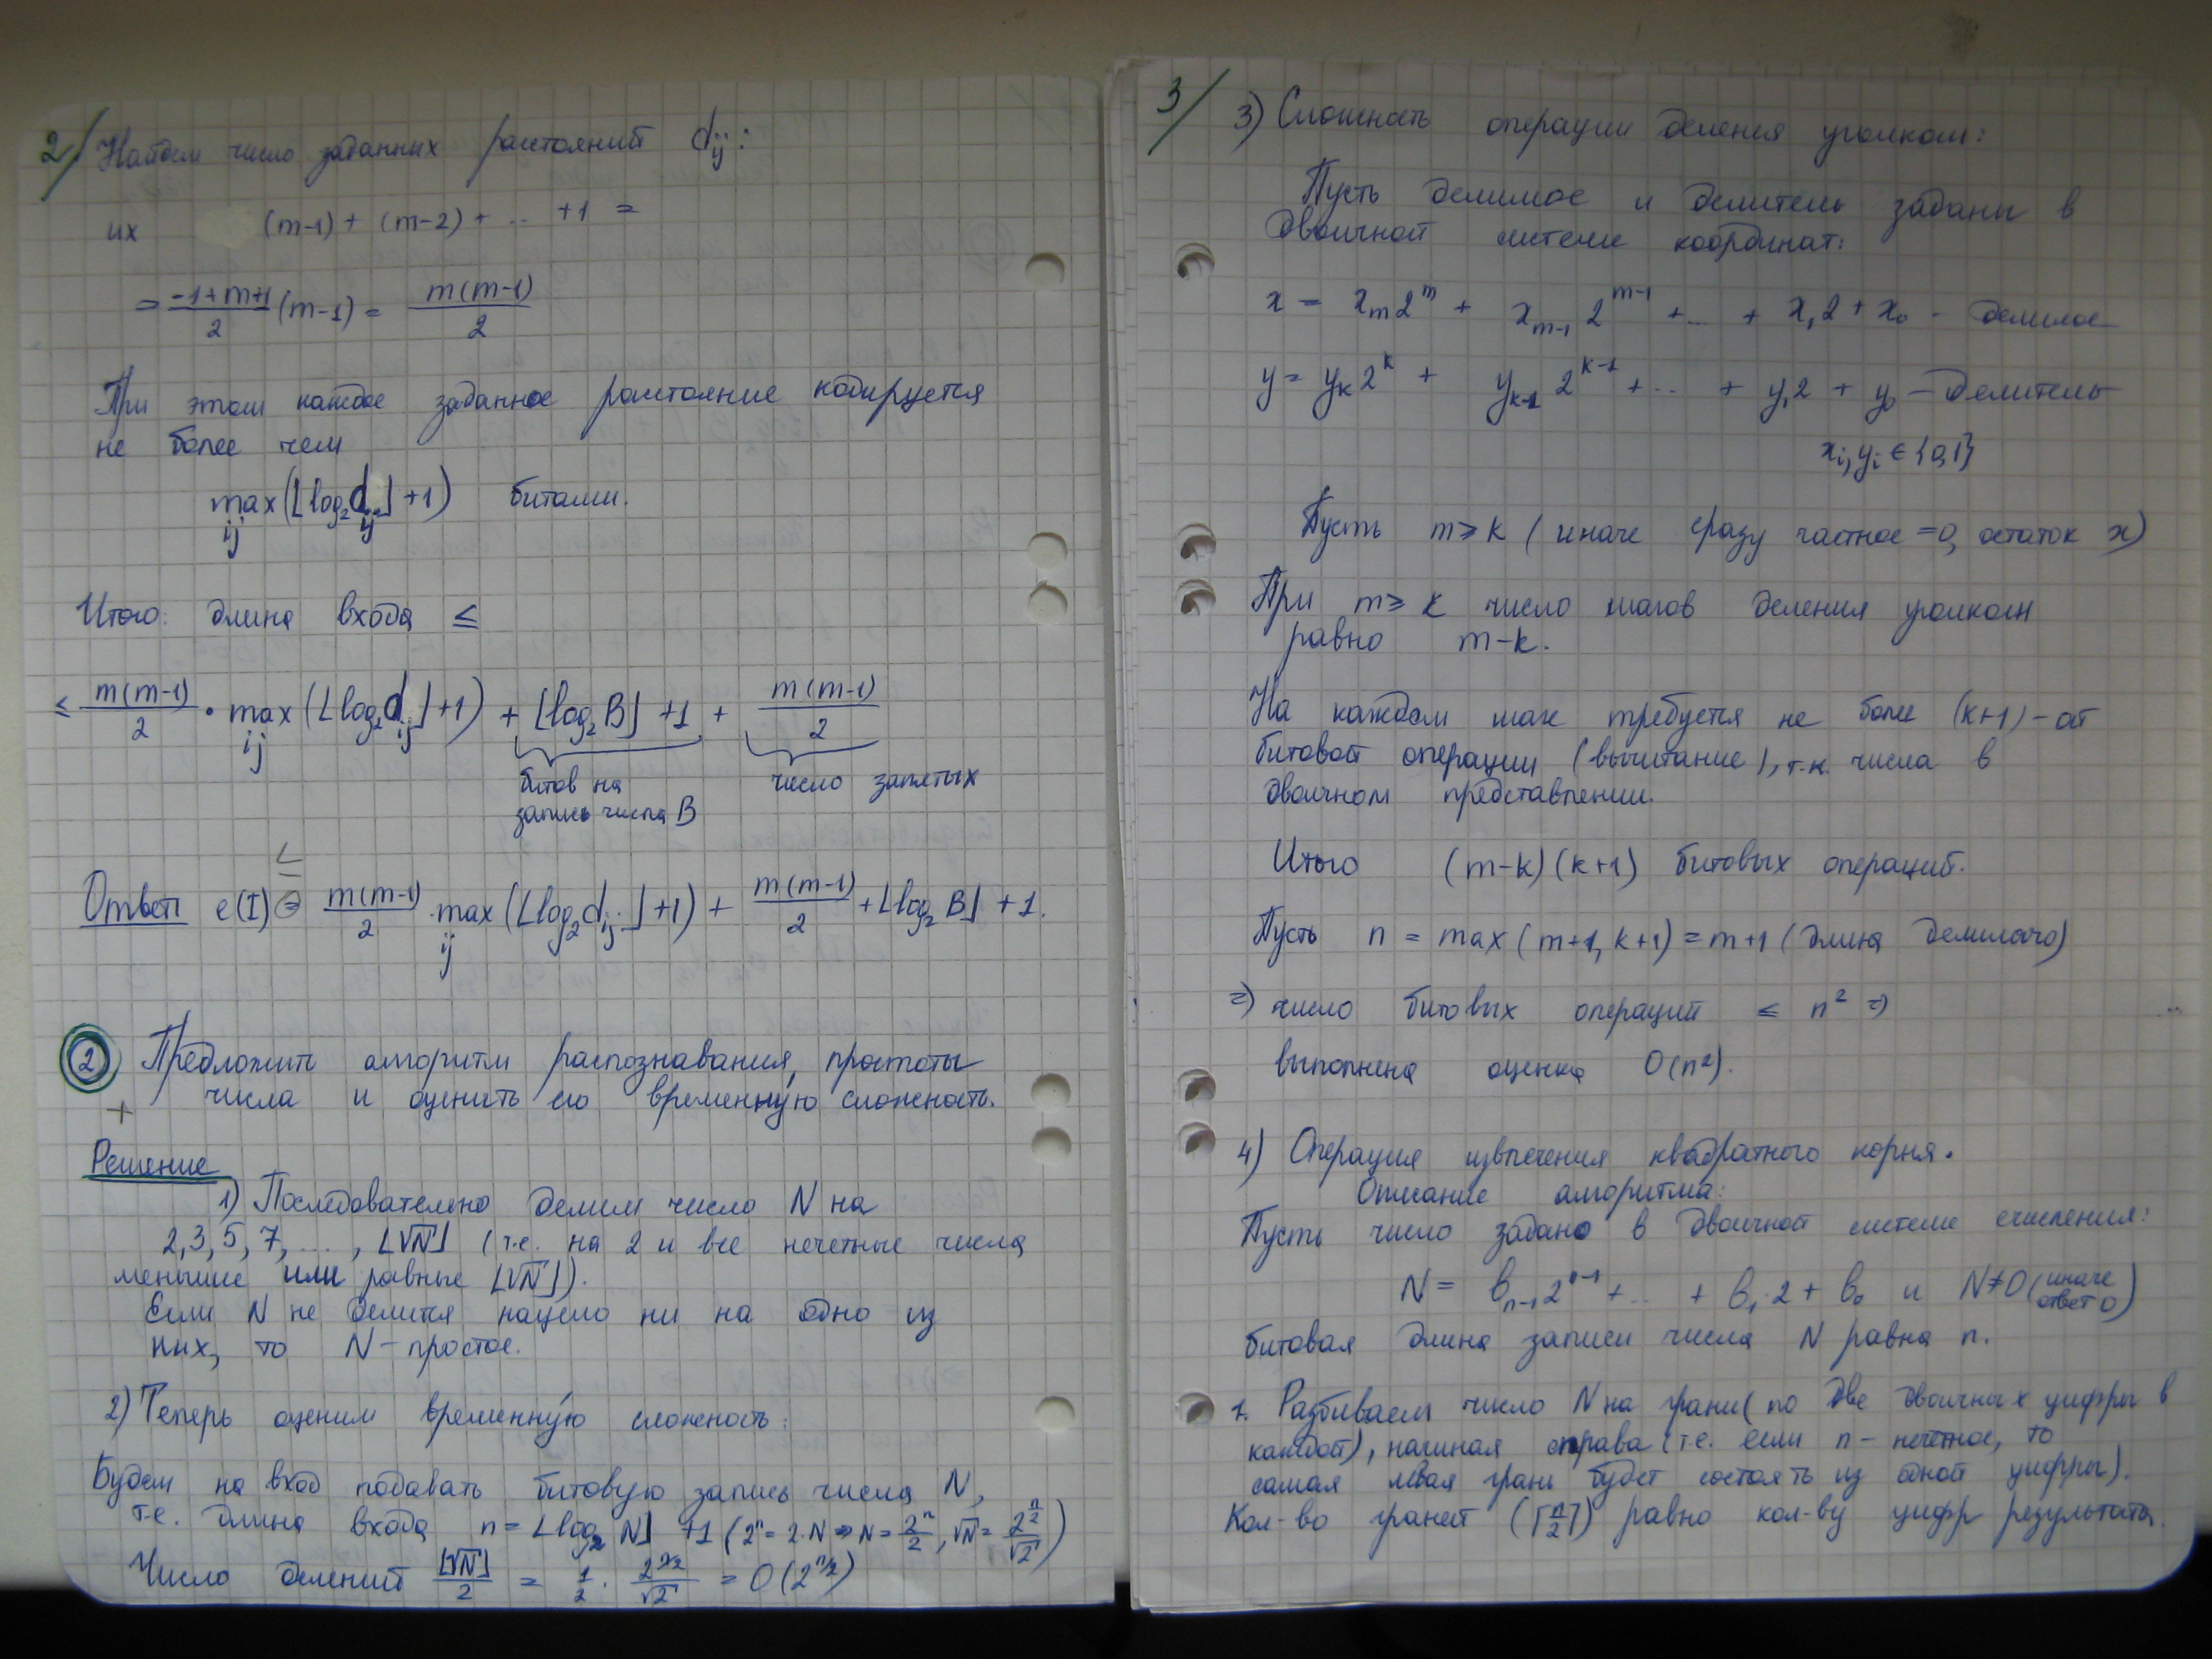 2/ Найдем число заданных расстояний dij:
их (m-1) + (m-2) + ... +1 =
= (-1+m+1)/2 (m-1) = m(m-1)/2
При этом каждое заданное расстояние кодируется
не более чем
max(⌊log₂dij⌋+1) битами.
ij
Итого: длина входа ≤
≤ m(m-1)/2 · max(⌊log₂dij⌋+1) + ⌊log₂B⌋ +1 + m(m-1)/2
ij
битов на
запись числа B
число запятых
≤
Ответ e(I) = m(m-1)/2 · max(⌊log₂dij⌋+1) + m(m-1)/2 + ⌊log₂B⌋ +1.
ij
② Предложить алгоритм распознавания простоты
числа и оценить его временную сложность.
+
Решение
1) Последовательно делим число N на
2,3,5,7,..., ⌊√N⌋ (т.е. на 2 и все нечетные числа
меньшие или равные ⌊√N⌋).
Если N не делится нацело ни на одно из
них, то N – простое.
2) Теперь оценим временную сложность:
Будем на вход подавать битовую запись числа N,
т.е. длина входа n = ⌊log₂N⌋ +1 (2ⁿ = 2·N ⇒ N = 2ⁿ/2, √N = 2^(n/2)/√2)
Число делений ⌊√N⌋/2 = 1/2 · 2^(n/2)/√2 = O(2^(n/2))
3/ 3) Сложность операции деления уголком:
Пусть делимое и делитель заданы в
двоичной системе координат:
x = xₘ2ᵐ + xₘ₋₁2ᵐ⁻¹ +... + x₁2 + x₀ - делимое
y = yₖ2ᵏ + yₖ₋₁2ᵏ⁻¹ +... + y₁2 + y₀ – делитель
xᵢ, yᵢ ∈ {0,1}
Пусть m ≥ k (иначе сразу частное = 0, остаток x)
При m ≥ k число шагов деления уголком
равно m-k.
На каждом шаге требуется не более (k+1)-ой
битовой операции (вычитание), т.к. числа в
двоичном представлении.
Итого (m-k)(k+1) битовых операций.
Пусть n = max(m+1, k+1) = m+1 (длина делимого)
⇒ число битовых операций ≤ n² ⇒
выполнена оценка O(n²).
4) Операция извлечения квадратного корня.
Описание алгоритма:
Пусть число задано в двоичной системе счисления:
N = bₙ₋₁2ⁿ⁻¹ +... + b₁·2 + b₀ и N≠0 (иначе ответ 0)
битовая длина записи числа N равна n.
1. Разбиваем число N на грани (по две двоичных цифры в
каждой), начиная справа (т.е. если n – нечетное, то
самая левая грань будет состоять из одной цифры).
Кол-во граней (⌈n/2⌉) равно кол-ву цифр результата.